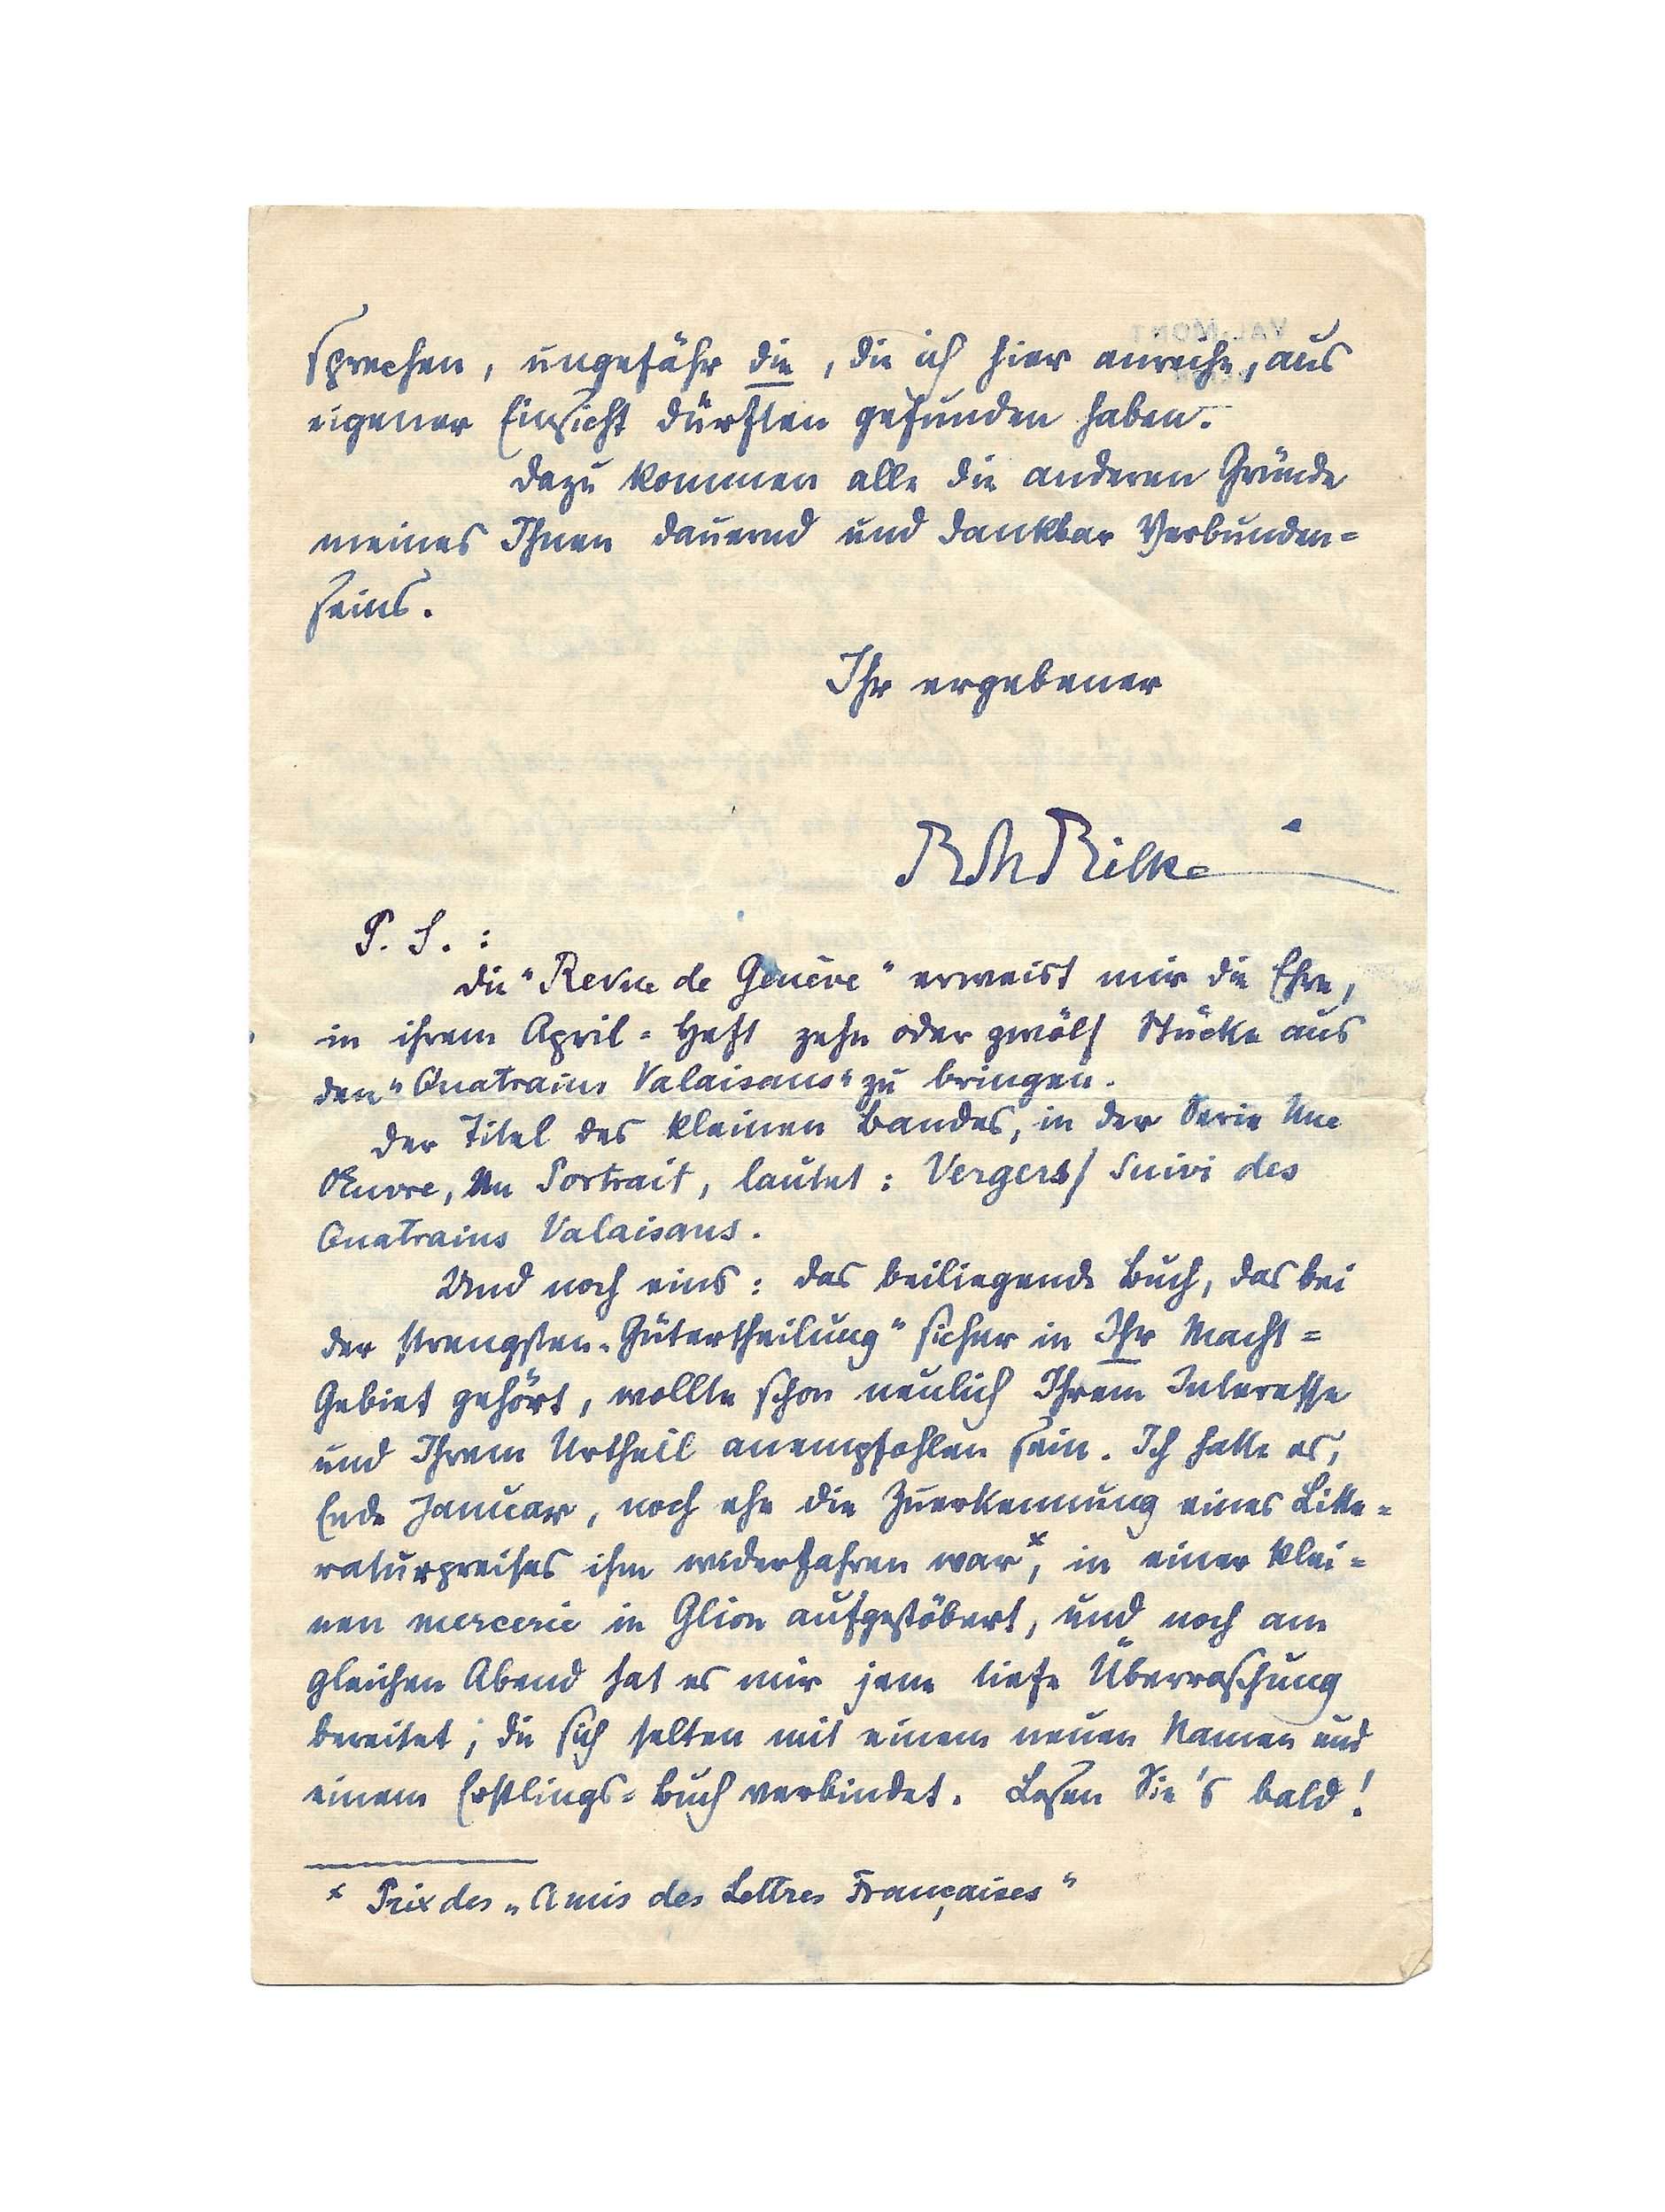 sprechen, ungefähr die, die ich hier anreihe, aus
eigener Einsicht dürften gefunden haben.
Dazu kommen alle die anderen Gründe
meines Ihnen dauernd und dankbar Verbunden=
seins.
Ihr ergebener
RMRilke
P. S. :
Die "Revue de Genève" erweist mir die Ehre,
in ihrem April=Heft zehn oder zwölf Stücke aus
den "Quatrains Valaisans" zu bringen.
Der Titel des kleinen Bandes, in der Serie Une
Œuvre, Un Portrait, lautet: Vergers/ Suivi des
Quatrains Valaisans.
Und noch eins: das beiliegende Buch, das bei
der strengsten "Gütertheilung" sicher in Ihr Macht=
Gebiet gehört, wollte schon neulich Ihrem Interesse
und Ihrem Urtheil anempfohlen sein. Ich hatte es,
Ende Januar, noch ehe die Zuerkennung eines Litte=
raturpreises ihm widerfahren war ×, in einer klei=
nen mercerie in Glion aufgestöbert, und noch am
gleichen Abend hat es mir jene tiefe Überraschung
bereitet, die sich selten mit einem neuen Namen und
einem Erstlings=Buch verbindet. Lesen Sie's bald!
× Prix des „Amis des Lettres Françaises"